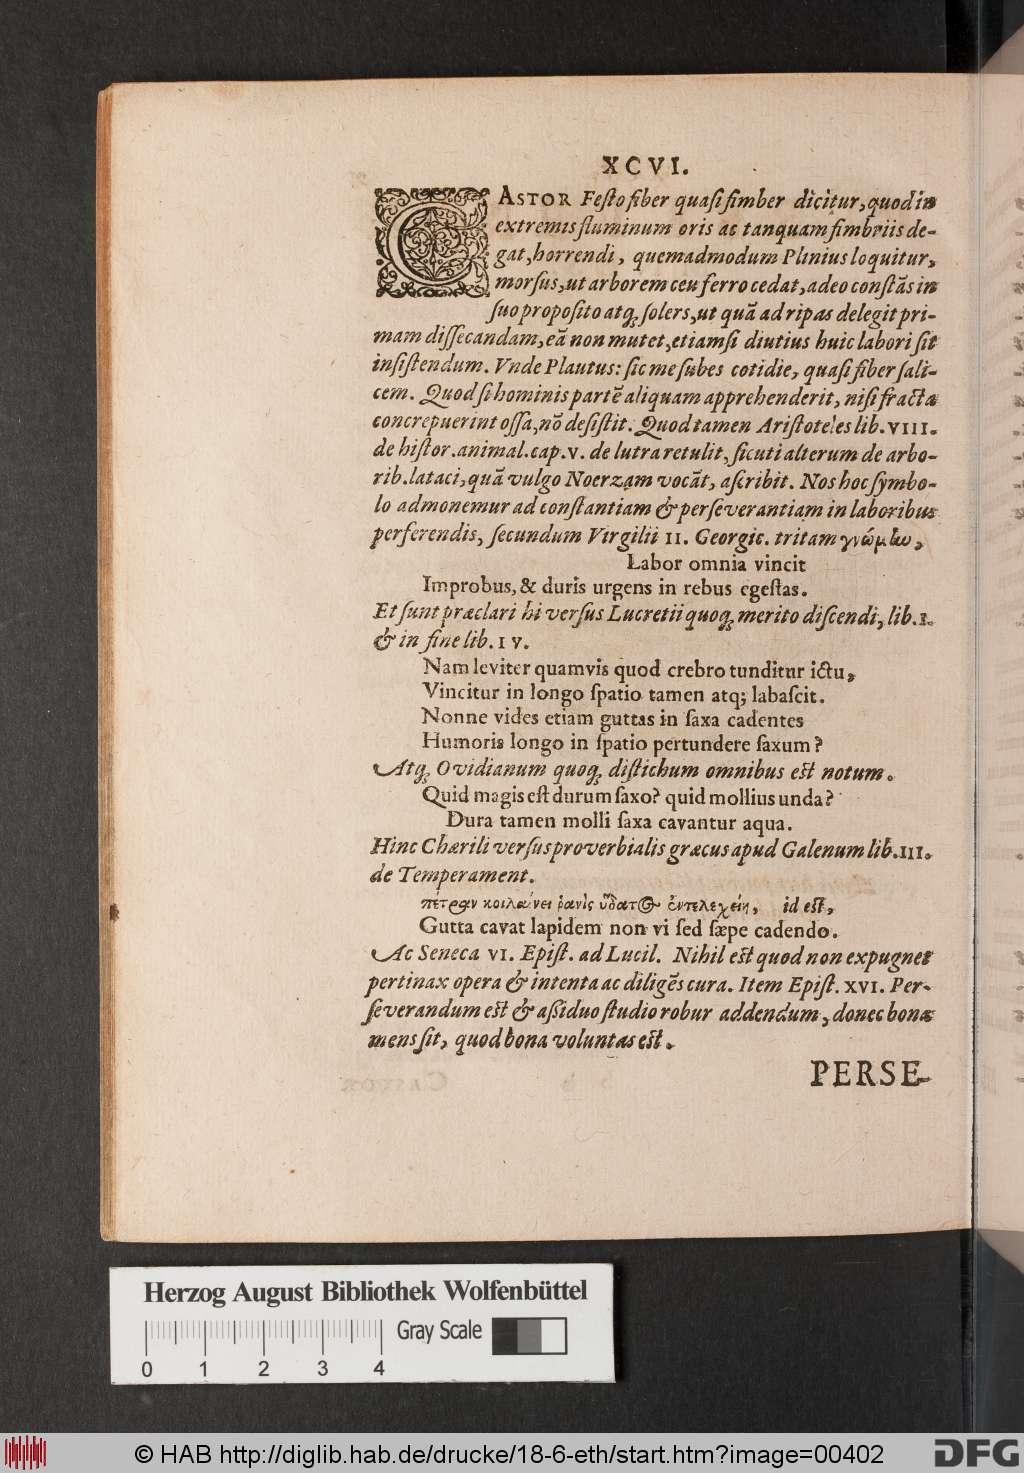 XCVI.
CASTOR Festo fiber quasi fimber dicitur, quod in
extremis fluminum oris ac tanquam fimbriis de-
gat, horrendi, quemadmodum Plinius loquitur,
morsus, ut arborem ceu ferro cedat, adeo constãs in
suo proposito atq; solers, ut quã ad ripas delegit pri-
mam dissecandam, eã non mutet, etiamsi diutius huic labori sit
insistendum. Vnde Plautus: sic me subes cotidie, quasi fiber sali-
cem. Quod si hominis partẽ aliquam apprehenderit, nisi fracta
concrepuerint ossa, nõ desistit. Quod tamen Aristoteles lib. VIII.
de histor. animal. cap. V. de lutra retulit, sicuti alterum de arbo-
rib. lataci, quã vulgo Noerzam vocãt, ascribit. Nos hoc symbo-
lo admonemur ad constantiam & perseverantiam in laboribus
perferendis, secundum Virgilii II. Georgic. tritam γνώμην,
Labor omnia vincit
Improbus, & duris urgens in rebus egestas.
Et sunt præclari hi versus Lucretii quoq; merito discendi, lib. I.
& in fine lib. IV.
Nam leviter quamvis quod crebro tunditur ictu,
Vincitur in longo spatio tamen atq; labascit.
Nonne vides etiam guttas in saxa cadentes
Humoris longo in spatio pertundere saxum?
Atq; Ovidianum quoq; distichum omnibus est notum.
Quid magis est durum saxo? quid mollius unda?
Dura tamen molli saxa cavantur aqua.
Hinc Chærili versus proverbialis græcus apud Galenum lib. III.
de Temperament.
πέτραν κοιλαίνει ῥανὶς ὕδατος ἐντελεχείῃ, id est,
Gutta cavat lapidem non vi sed sæpe cadendo.
Ac Seneca VI. Epist. ad Lucil. Nihil est quod non expugnet
pertinax opera & intenta ac diligẽs cura. Item Epist. XVI. Per-
severandum est & assiduo studio robur addendum, donec bona
mens sit, quod bona voluntas est.
PERSE-
Herzog August Bibliothek Wolfenbüttel
Gray Scale
0 1 2 3 4
© HAB http://diglib.hab.de/drucke/18-6-eth/start.htm?image=00402
DFG